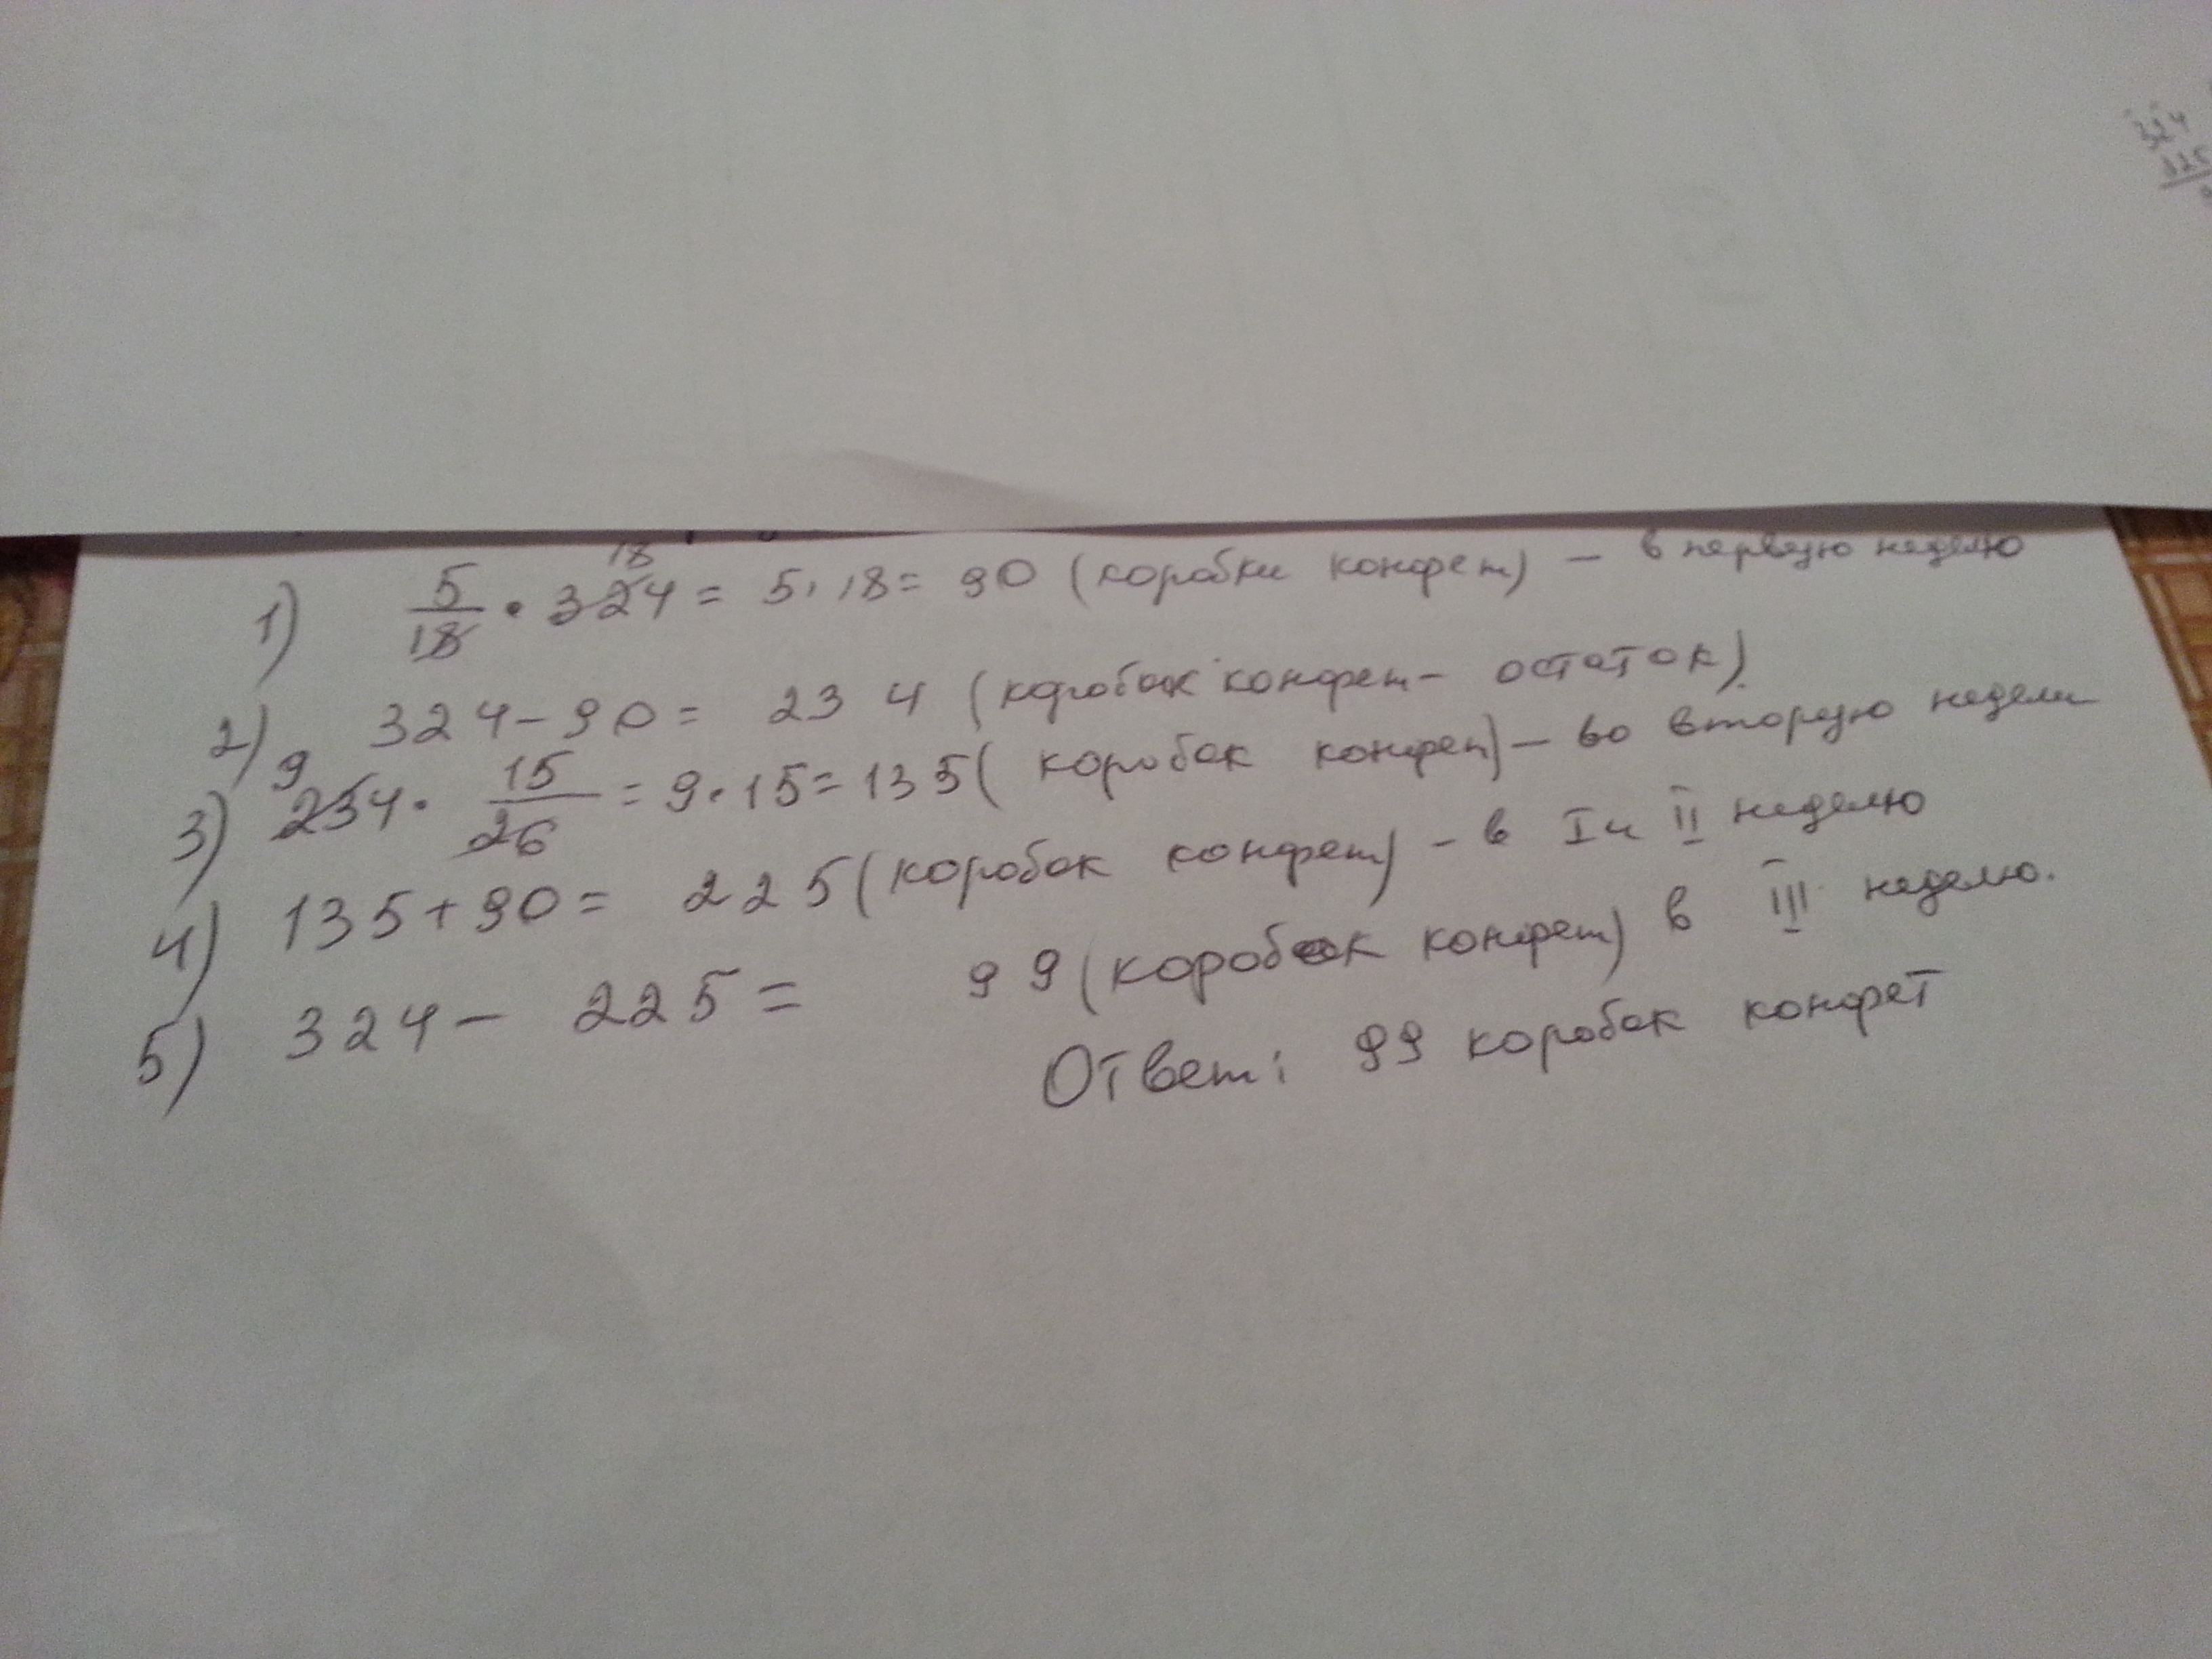 324
225
1) 5/18 · 324 = 5 · 18 = 90 (коробки конфет) – в первую неделю
18
2) 324 – 90 = 234 (коробок конфет – остаток).
9
3) 234 · 15/26 = 9 · 15 = 135 (коробок конфет) – во вторую недели
4) 135 + 90 = 225 (коробок конфет) – в I и II неделю
5) 324 – 225 = 99 (коробок конфет) в III неделю.
Ответ: 99 коробок конфет